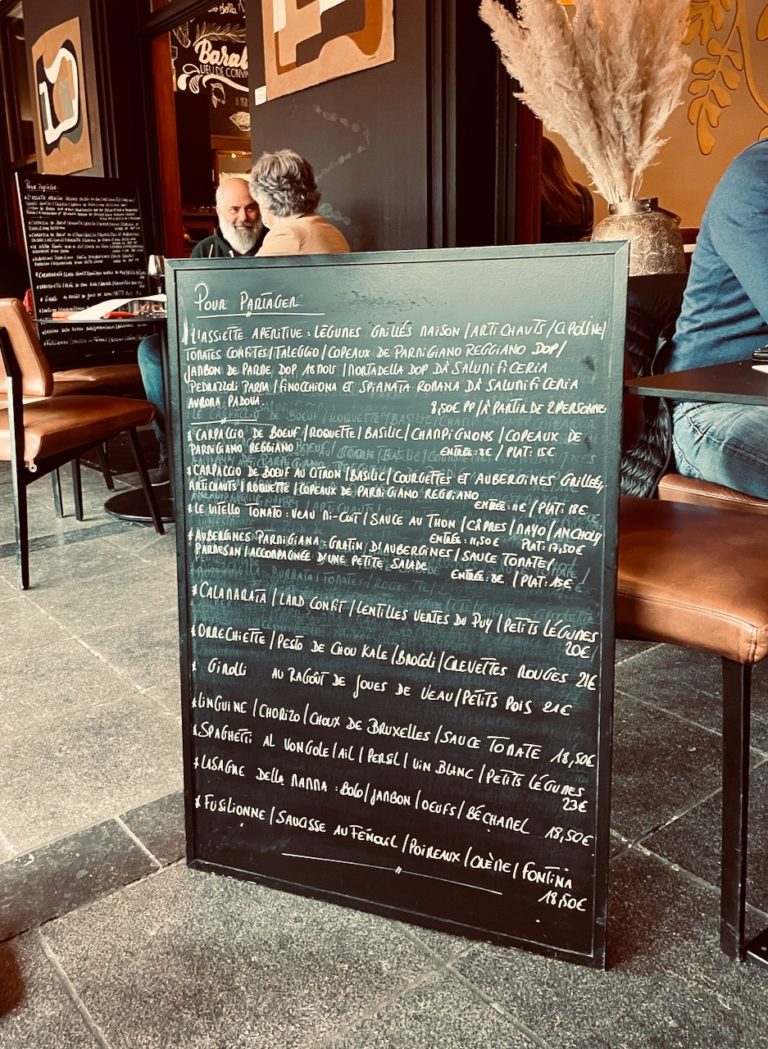 Bella
Baral
LIEU DE CONVI
POUR PARTAGER
POUR PARTAGER
L'ASSIETTE APÉRITIVE : LÉGUNES GRILLÉS NAISON / ARTICHAUTS / CIPOLINE/
TONATES CONFITES / TALEGGIO / COPEAUX DE PARNIGIANO REGGIANO DOP/
JANBON DE PARNE DOP 24 NOIS / NORTADELLA DOP DA SALUNIFICERIA
PEDRAZZOLI PARNA / FINOCCHIONA ET SPIANATA RONANA DA SALUNIFICERIA
AURORA PADOVA.
8,50€ PP / À PARTIR DE 2 PERSONNES
* CARPACCIO DE BOEUF / ROQUETTE / BASILIC / CHANPIGNONS / COPEAUX DE
PARNIGIANO REGGIANO ENTRÉE : 8€ / PLAT : 15€
* CARPACCIO DE BOEUF AU CITRON / BASILIC / COURGETTES ET AUBERGINES GRILLÉES,
ARTICHAUTS / ROQUETTE / COPEAUX DE PARNIGIANO REGGIANO
ENTRÉE : 11€ / PLAT : 18€
* LE VITELLO TONATO : VEAU NI-CUIT / SAUCE AU THON / CÂPRES / NAYO / ANCHOIS
ENTRÉE : 11,50€ PLAT : 17,50€
* AUBERGINES PARNIGIANA : GRATIN D'AUBERGINES / SAUCE TONATE /
PARNESAN / ACCOMPAGNÉE D'UNE PETITE SALADE ENTRÉE : 8€ / PLAT : 15€
* CALANARATA / LARD CONFIT / LENTILLES VERTES DU PUY / PETITS LÉGUNES
20€
* ORRECHIETTE / PESTO DE CHOU KALE / BROCOLI / CREVETTES ROUGES 21€
* GIROLLI AU RAGOÛT DE JOUES DE VEAU / PETITS POIS 21€
* LINGUINE / CHORIZO / CHOUX DE BRUXELLES / SAUCE TONATE 18,50€
* SPAGHETTI AL VONGOLE / AIL / PERSIL / VIN BLANC / PETITS LÉGUNES
23€
* LASAGNE DELLA NANNA : BOLO / JANBON / OEUFS / BÉCHANEL 18,50€
* FUSILIONNE / SAUCISSE AU FENOUIL / POIREAUX / CRÈNE / FONTINA
18,50€